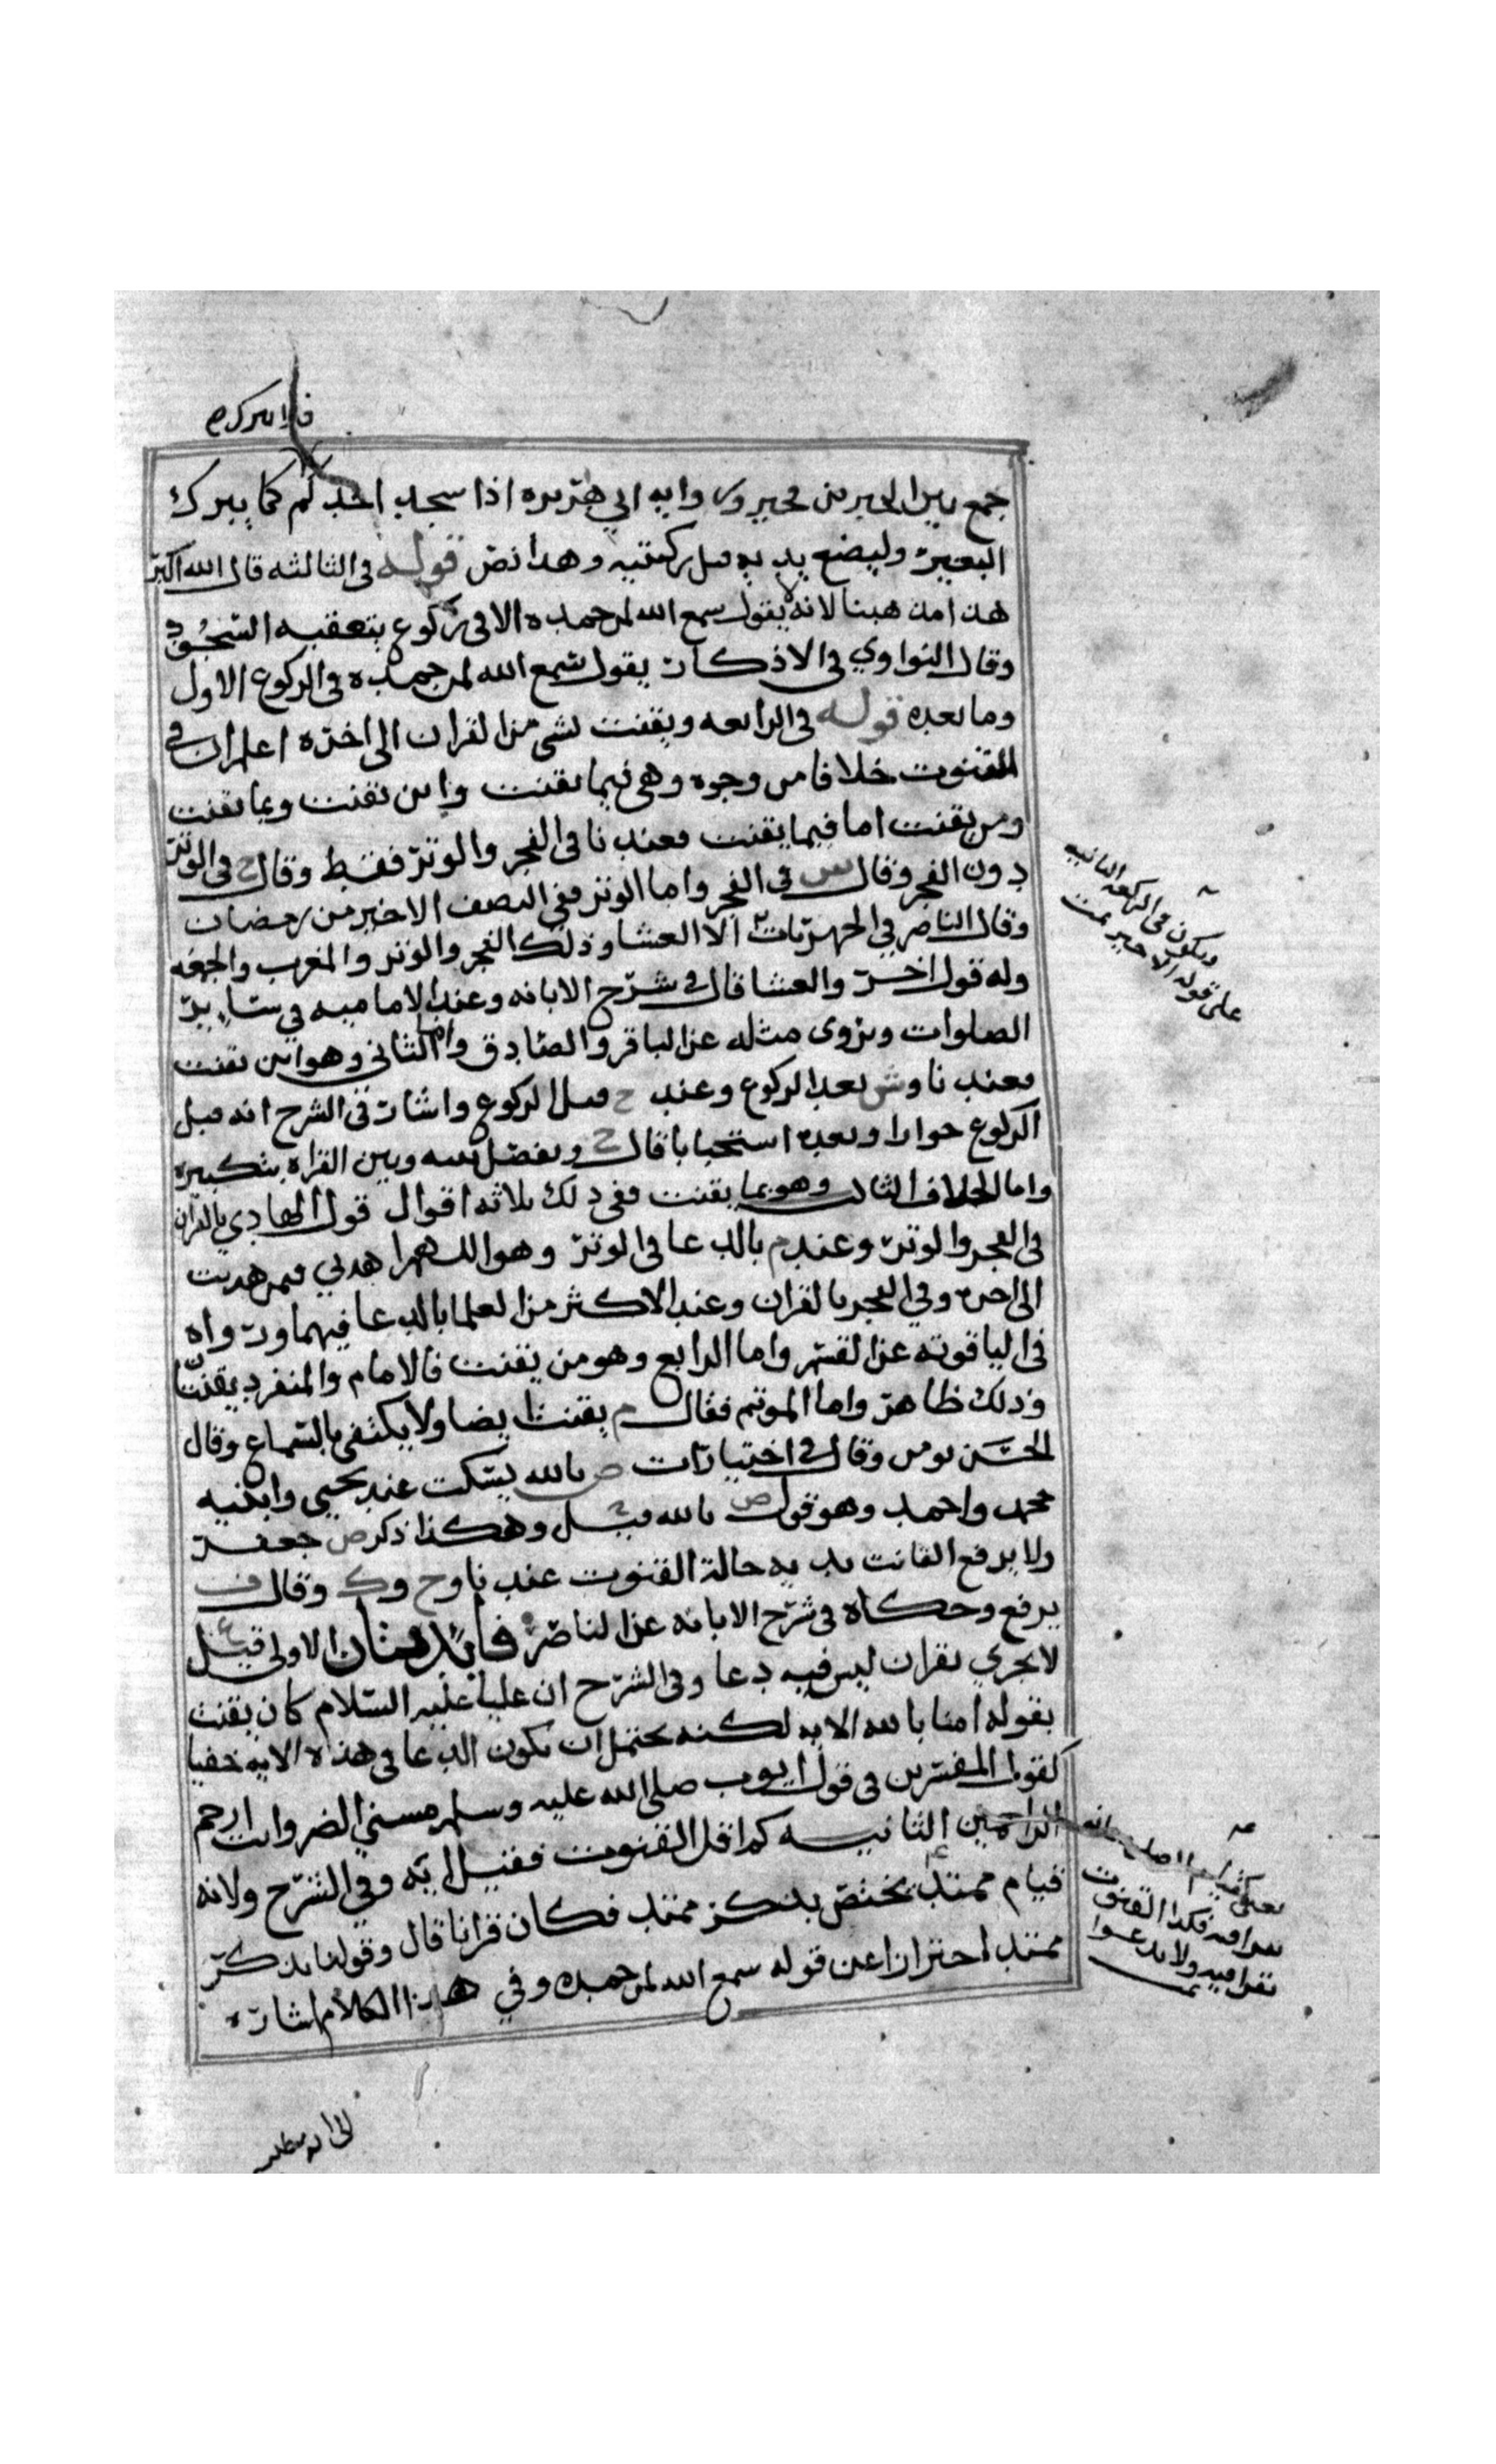 جمع بين الخبرين محروى وابه ابي هريره اذا سجد احدكم كما يبرك
البعير وليضع يديه قبل ركبتيه وهذا نص قوله في الثالثه قال الله اكبر
هذا مذهبنا لانه لا يقول سمع الله لمن حمده الا في ركوع يتعقبه السجود
وقال النواوي في الاذكار يقول سمع الله لمن حمده في الركوع الاول
وما بعده قوله في الرابعه ويقنت بشي من القران الى اخره اعلم ان في
القنوت خلافا من وجوه وهي فيما يقنت واين يقنت وبما يقنت
ومن يقنت اما فيما يقنت فعندنا في الفجر والوتر فقط وقال ح في الوتر
دون الفجر وقال ش في الفجر واما الوتر ففي النصف الاخير من رمضان
وقال الناصر في الجهريات الا العشا وذلك الفجر والوتر والمغرب والجمعه
وله قول اخر والعشا قال في شرح الابانه وعند الاماميه في ساير
الصلوات ويروى مثله عن الباقر والصادق واما الثاني وهو اين يقنت
فعندنا وش بعد الركوع وعند ح قبل الركوع واشار في الشرح انه قبل
الركوع جوازا وبعده استحبابا قال ح ويفصل بينه وبين القراه بتكبيره
واما الخلاف الثالث وهو بما يقنت ففي ذلك ثلاثه اقوال قول الهادي بالقران
في الفجر والوتر وعند م بالدعا في الوتر وهو اللهم اهدني فيمن هديت
الى اخره وفي الفجر بالقران وعند الاكثر من العلما بالدعا فيهما ورواه
في الياقوته عن القسم واما الرابع وهو من يقنت فالامام والمنفرد يقنتا
وذلك ظاهر واما الموتم فقال م يقنت ايضا ولا يكتفي بالسماع وقال
الحسن يومن وقال في اختيارات ص بالله يسكت عند يحيى وابنيه
محمد واحمد وهو قول ص بالله وهكذا ذكر ص جعفر
ولا يرفع القانت يديه حالة القنوت عندنا وح وك وقال ف
يرفع وحكاه في شرح الابانه عن الناصر فايدتان الاولى قيل ع
لا يجزي بقران ليس فيه دعا وفي الشرح ان عليا عليه السلام كان يقنت
بقوله امنا بالله الايه لكنه يحتمل ان يكون الدعا في هذه الايه خفيا
كقول المفسرين في قول ايوب صلى الله عليه وسلم مسني الضر وانت ارحم
الراحمين الثانيه كم اقل القنوت فقيل ايه وفي الشرح ولانه
قيام ممتد يختص بذكر ممتد فكان قرانا قال وقولنا بذكر
ممتد احترازا عن قوله سمع الله لمن حمده وفي هذا الكلام اشاره
ويكون في الركعه الثانيه
على قوله الاخير تمت
يقرا فيه فكذا القنوت
يقرا فيه ولا يدعوا